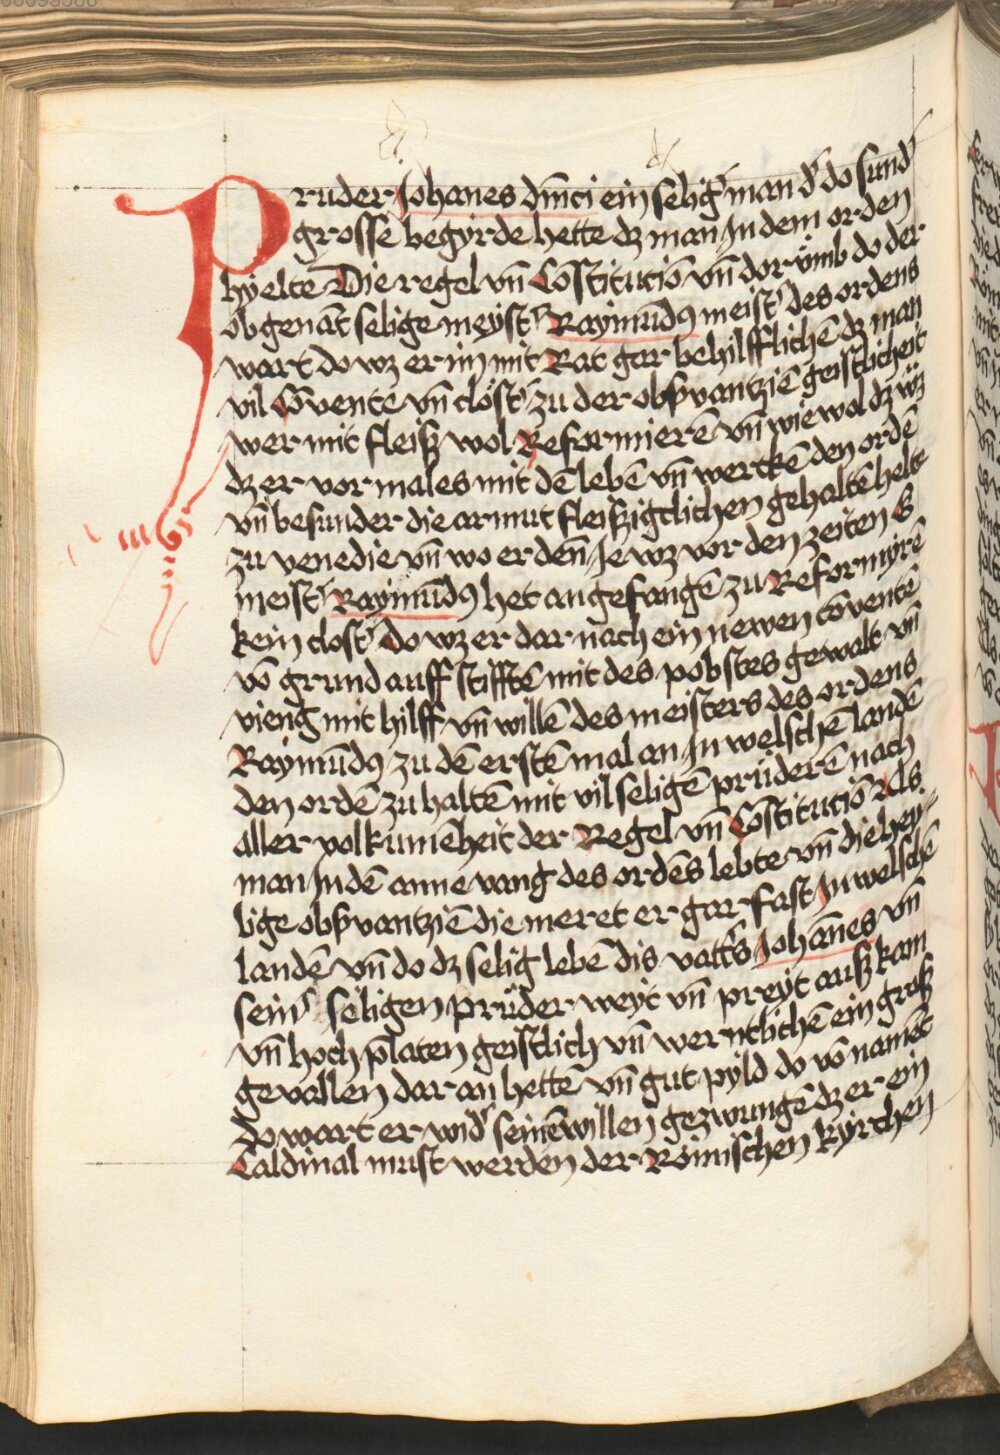 Pruder Johanes dm̄ci ein selig' man d' do sund'
grosse begyrde hette dz man Jn dem orden
hyelte Die regel vn̄ Cōstituciō vn̄ dor vmb do der
obgenāt selige meyst' Raymūdꝯ meist' des ordens
wart do wz er im mit Rat gar behilfflichē dz man
vil Cōvente vn̄ clöst' zu der obs̄vantziē geistlicheit
wer mit fleisz wol Reformierē vn̄ wie wol dz wz
dz er vormales mit dē lebē vn̄ werckē den ordē
vn̄ besunder die armut fleiszigclichen gehaltē hett
zu venedie vn̄ wo er den̄ Je wz vor den zeiten E
meist' Raymūdꝯ het angefangē zu Reformyrē
kein clost' do wz er dar nach ein newen cōventē
vō grund auff stifftē mit des pobstes gewalt vn̄
vieng mit hilff vn̄ willē des meisters des ordens
Raymūdꝯ zu dē erstē mal an Jn welschē landē
den ordē zu haltē mit vil seligē prüderē nach
aller volkumēheit der Regel vn̄ Cōstituciō Als
man Jn dē anne vang des ordēs lebte vn̄ die hey
lige obs̄vantziē die meret er gar fast Jn welschē
landē vn̄ do dz selig lebē dis vatt's Johānes vn̄
sein' seligen prüder weyt vn̄ preyt ausz kam
vn̄ hoch p̄laten geistlich vn̄ werntlichē ein grosz
gevallen dar an hettē vn̄ gut pyld do vō namēt
do wart er wid' seinē willen gezwungē dz er ein
Caldinal must werden der Römischen kyrchen